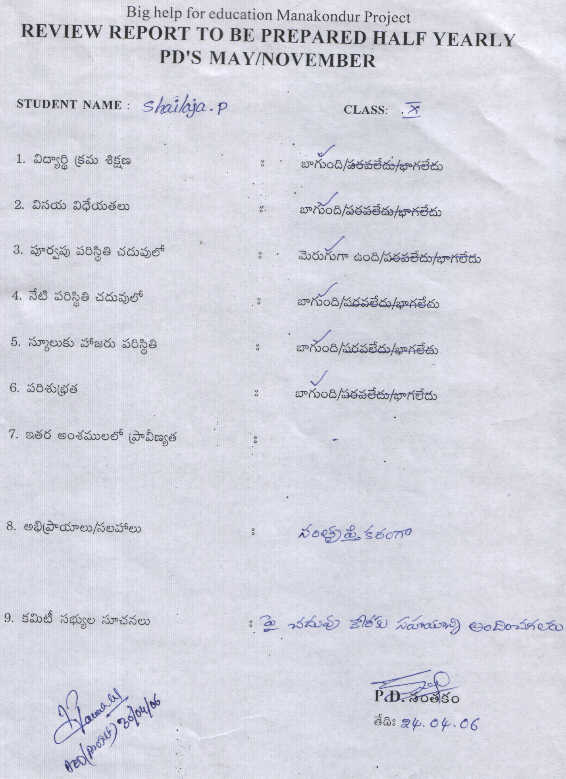 Big help for education Manakondur Project
REVIEW REPORT TO BE PREPARED HALF YEARLY
PD'S MAY/NOVEMBER
STUDENT NAME : Shailaja.P CLASS: X
1. విద్యార్థి క్రమ శిక్షణ : బాగుంది/పరవలేదు/భాగలేదు
2. వినయ విధేయతలు : బాగుంది/పరవలేదు/భాగలేదు
3. పూర్వపు పరిస్థితి చదువులో : మెరుగుగా ఉంది/పరవలేదు/భాగలేదు
4. నేటి పరిస్థితి చదువులో : బాగుంది/పరవలేదు/భాగలేదు
5. స్కూలుకు హాజరు పరిస్థితి : బాగుంది/పరవలేదు/భాగలేదు
6. పరిశుభ్రత : బాగుంది/పరవలేదు/భాగలేదు
7. ఇతర అంశములలో ప్రావీణ్యత :
8. అభిప్రాయాలు/సలహాలు : సంతృప్తికరంగా
9. కమిటీ సభ్యుల సూచనలు : పై చదువు కొరకు సహాయాన్ని అందించగలరు
P.D. సంతకం
తేదిః 24.04.06
30/04/06